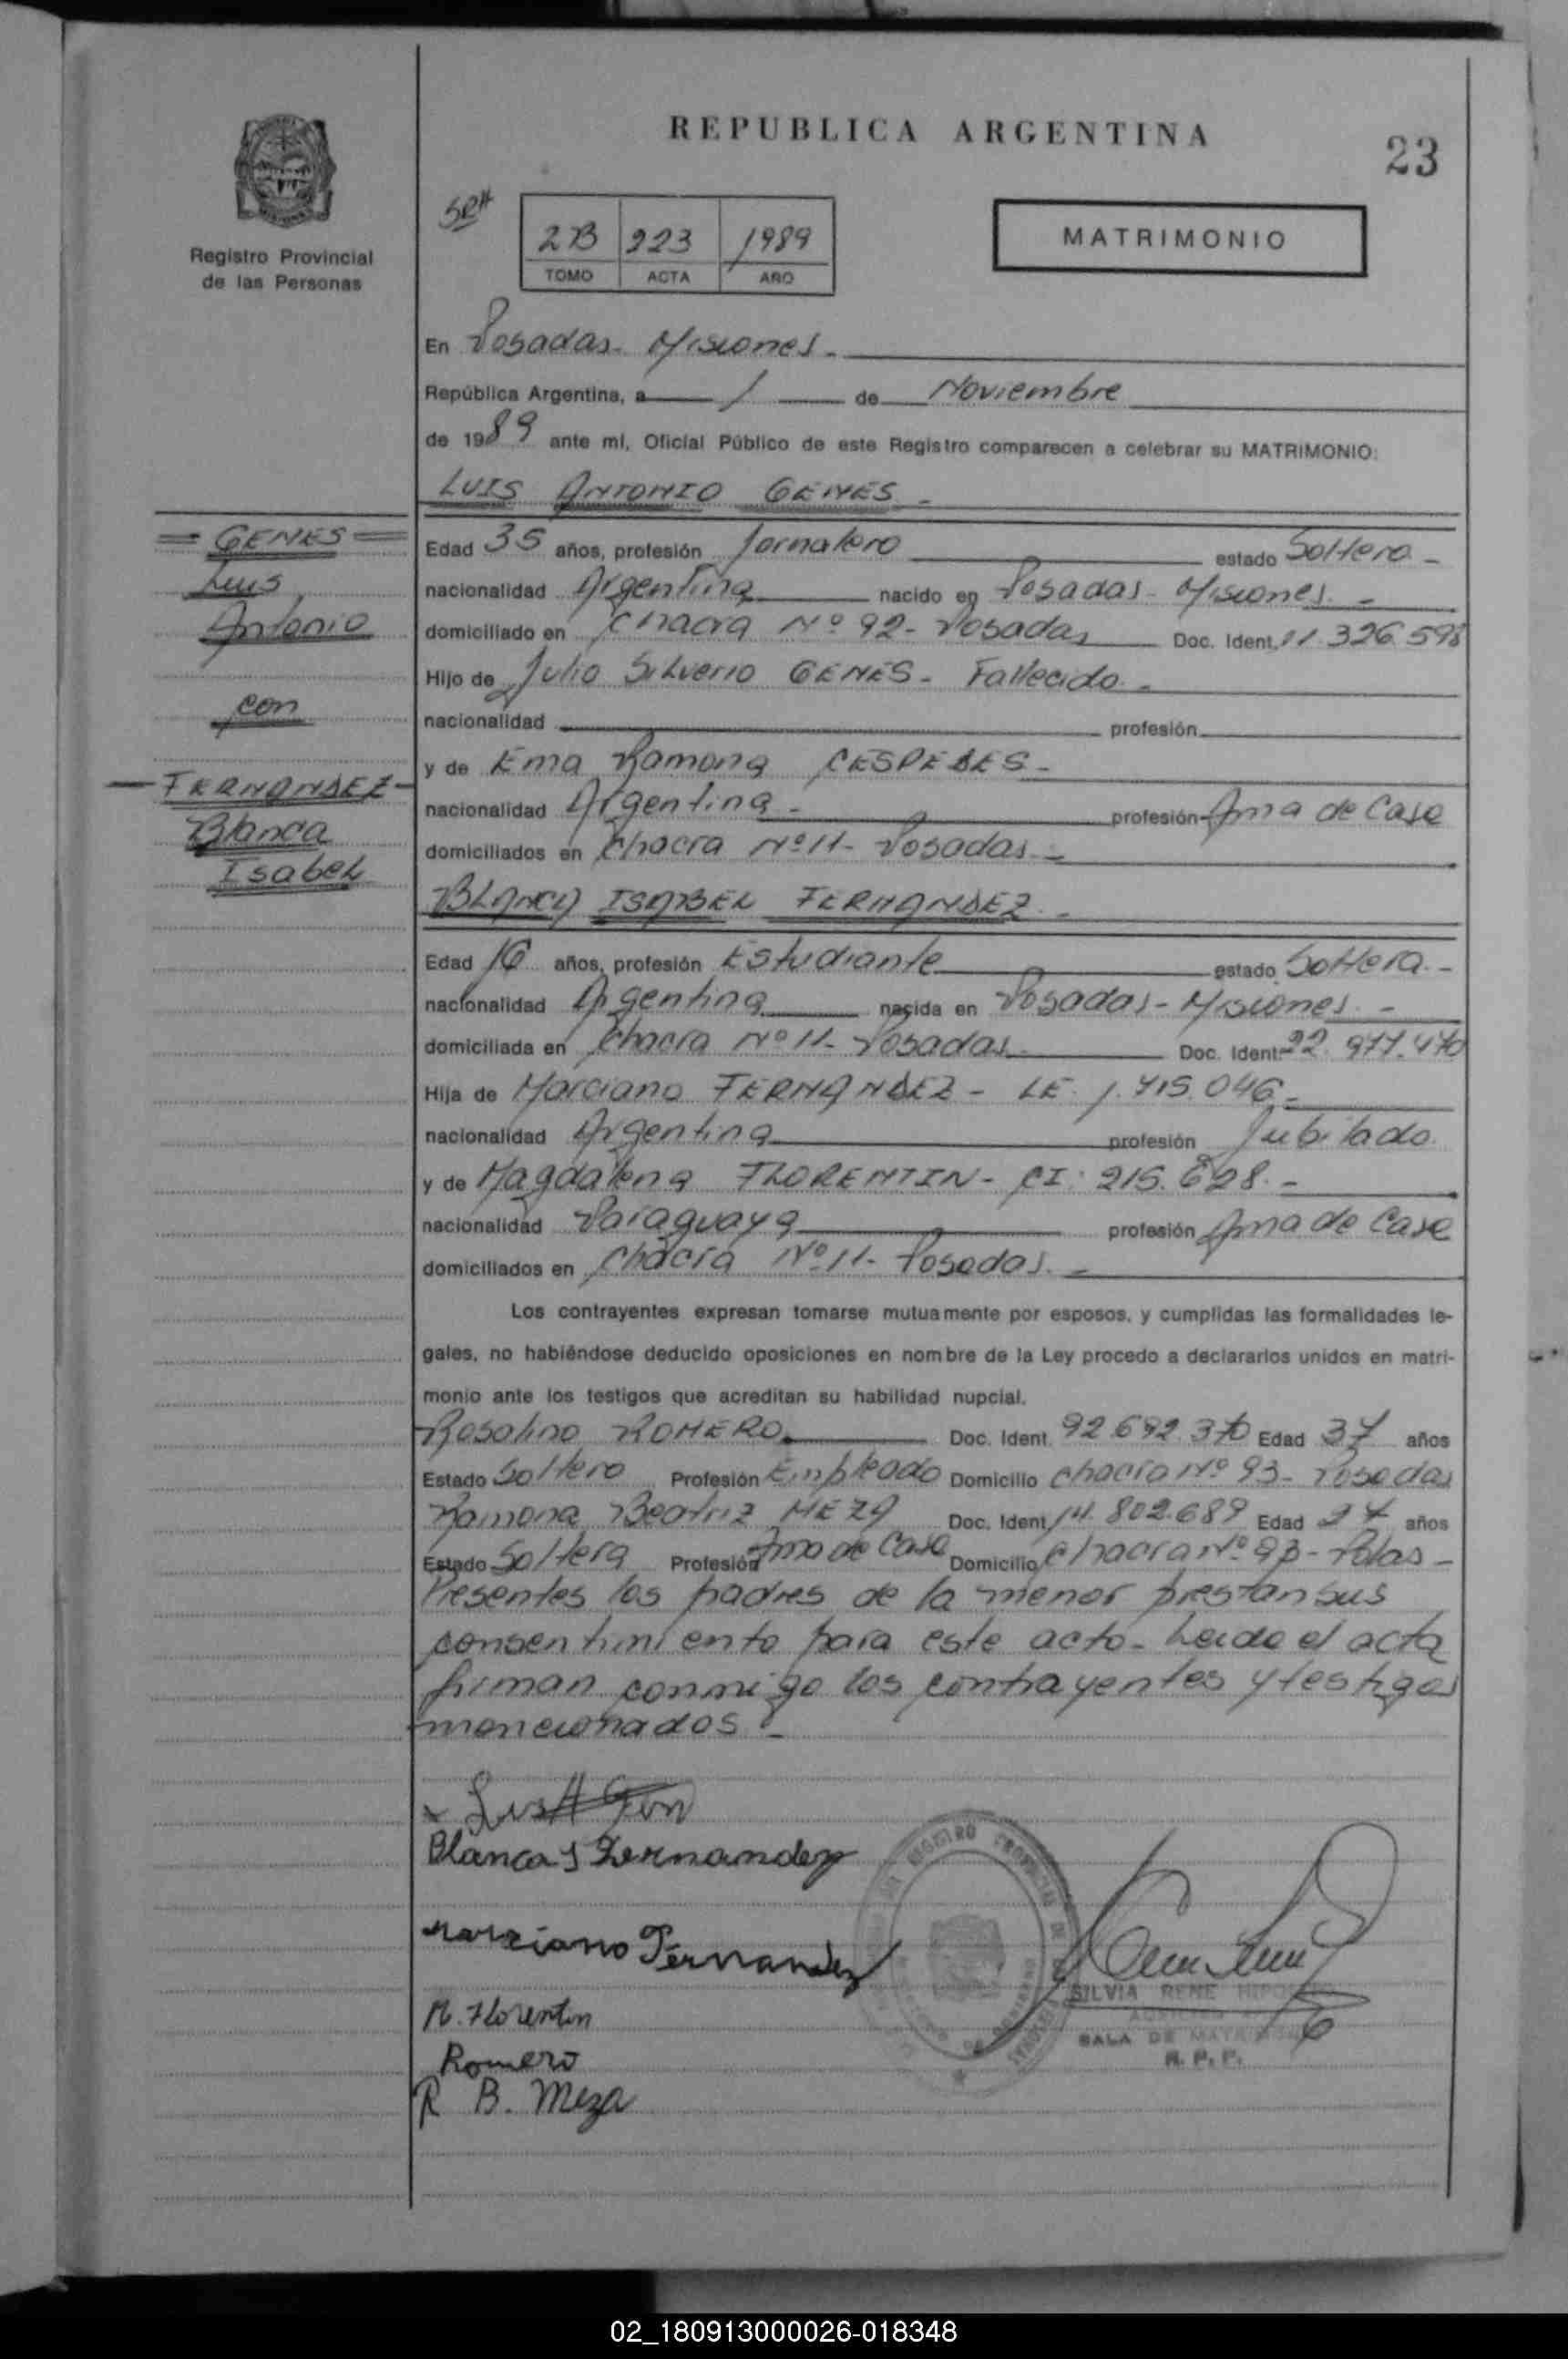 REPUBLICA ARGENTINA
23
Registro Provincial
de las Personas
SRH
2B 223 1989
TOMO ACTA AÑO
MATRIMONIO
En Posadas - Misiones -
República Argentina, a 1 de Noviembre
de 1989 ante mí, Oficial Público de este Registro comparecen a celebrar su MATRIMONIO:
LUIS ANTONIO GENES -
= GENES =
Luis
Antonio
con
- FERNANDEZ -
Blanca
Isabel
Edad 35 años, profesión Jornalero estado Soltero -
nacionalidad Argentina nacido en Posadas - Misiones. -
domiciliado en Chacra Nº 92 - Posadas Doc. Ident. 11.326.598
Hijo de Julio Silverio GENES - Fallecido. -
nacionalidad profesión
y de Ema Ramona CESPEDES -
nacionalidad Argentina - profesión Ama de Casa
domiciliados en Chacra Nº 11 - Posadas -
BLANCA ISABEL FERNANDEZ. -
Edad 16 años, profesión Estudiante estado Soltera. -
nacionalidad Argentina nacida en Posadas - Misiones. -
domiciliada en Chacra Nº 11 - Posadas Doc. Ident. 22.977.470
Hija de Marciano FERNANDEZ - LE. 1.715.046 -
nacionalidad Argentina profesión Jubilado
y de Magdalena FLORENTIN - CI: 215.628. -
nacionalidad Paraguaya profesión Ama de Casa
domiciliados en Chacra Nº 11 - Posadas. -
Los contrayentes expresan tomarse mutuamente por esposos, y cumplidas las formalidades le-
gales, no habiéndose deducido oposiciones en nombre de la Ley procedo a declararlos unidos en matri-
monio ante los testigos que acreditan su habilidad nupcial.
Rosalino ROMERO Doc. Ident. 92.692.370 Edad 37 años
Estado Soltero Profesión Empleado Domicilio Chacra Nº 93 - Posadas
Ramona Beatriz MEZA Doc. Ident. 14.802.689 Edad 27 años
Estado Soltera Profesión Ama de Casa Domicilio Chacra Nº 93 - Pdas -
Presentes los padres de la menor prestan sus
consentimiento para este acto - Leido el acta
firman conmigo los contrayentes y testigos
mencionados -
x Luis A Gen
Blanca I Fernandez
Marciano Fernandez
M. Florentin
Romero
R B. Meza
REGISTRO PROVINCIAL DE
SILVIA RENE
SALA DE MATRIMONIO
R. P. P.
02_180913000026-018348